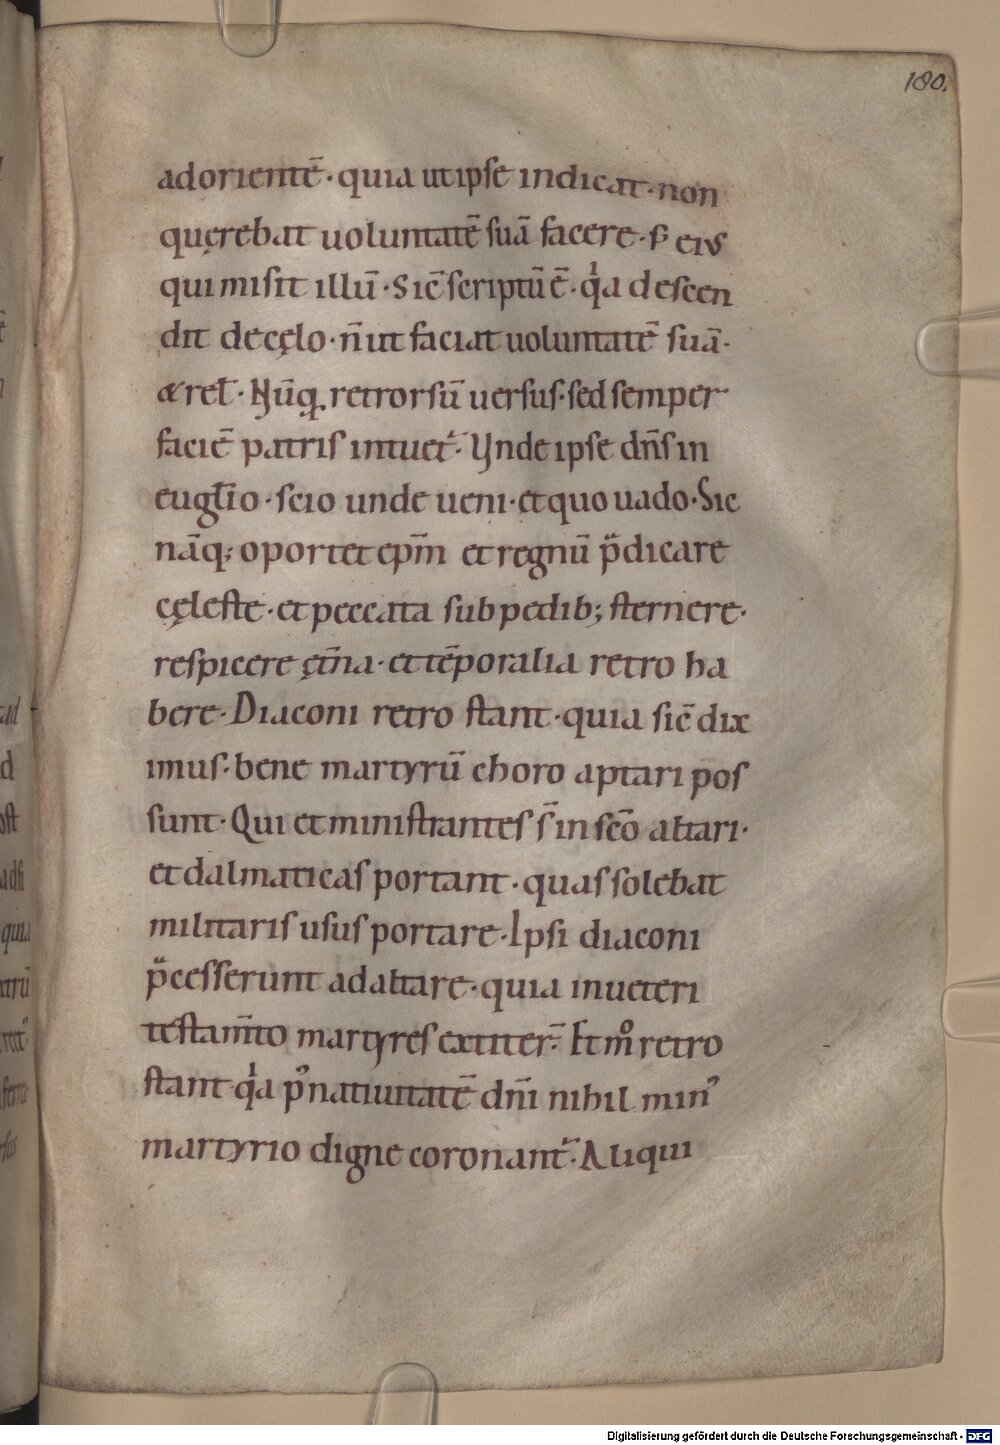 180.
ad orientē · quia ut ipse indicat · non
quęrebat uoluntatē suā facere · s; eius
qui misit illū · Sic̄ scriptū ē · qͥa descen
dit de cęlo · n̄ ut faciat uoluntatē suā ·
& rel̄ · Nūq retrorsū uersus · sed semper
faciē patris intuet̄ · Vnde ipse dn̄s in
eugl̄io · scio unde ueni · et quo uado · Sic
nāq; oportet ep̄m et regnū p̄dicare
cęleste · et peccata sub pedib; sternere ·
respicere ęt̄na · et tēporalia retro ha
bere · Diaconi retro stant · quia sic̄ dix
imus · bene martyrū choro aptari pos
sunt · Qui et ministrantes s̄ in sc̄o altari ·
et dalmaticas portant · quas solebat
militaris usus portare · Ipsi diaconi
p̄cesserunt ad altare · quia in ueteri
testam̄to martyres extiter̄ · Et mͦ retro
stant qͥa pꝰ natiuitatē dn̄i nihil minꝰ
martyrio digne coronant̄ · Aliqui
Digitalisierung gefördert durch die Deutsche Forschungsgemeinschaft - DFG